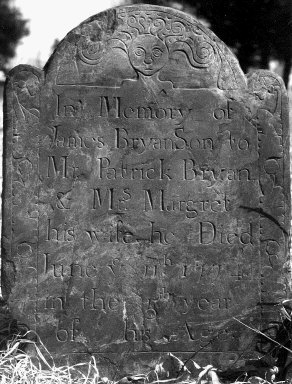 In Memory of
James Bryan Son to
Mr. Patrick Bryan
& Mrs Margret
his wife he Died
June ye
in the year
of his Age